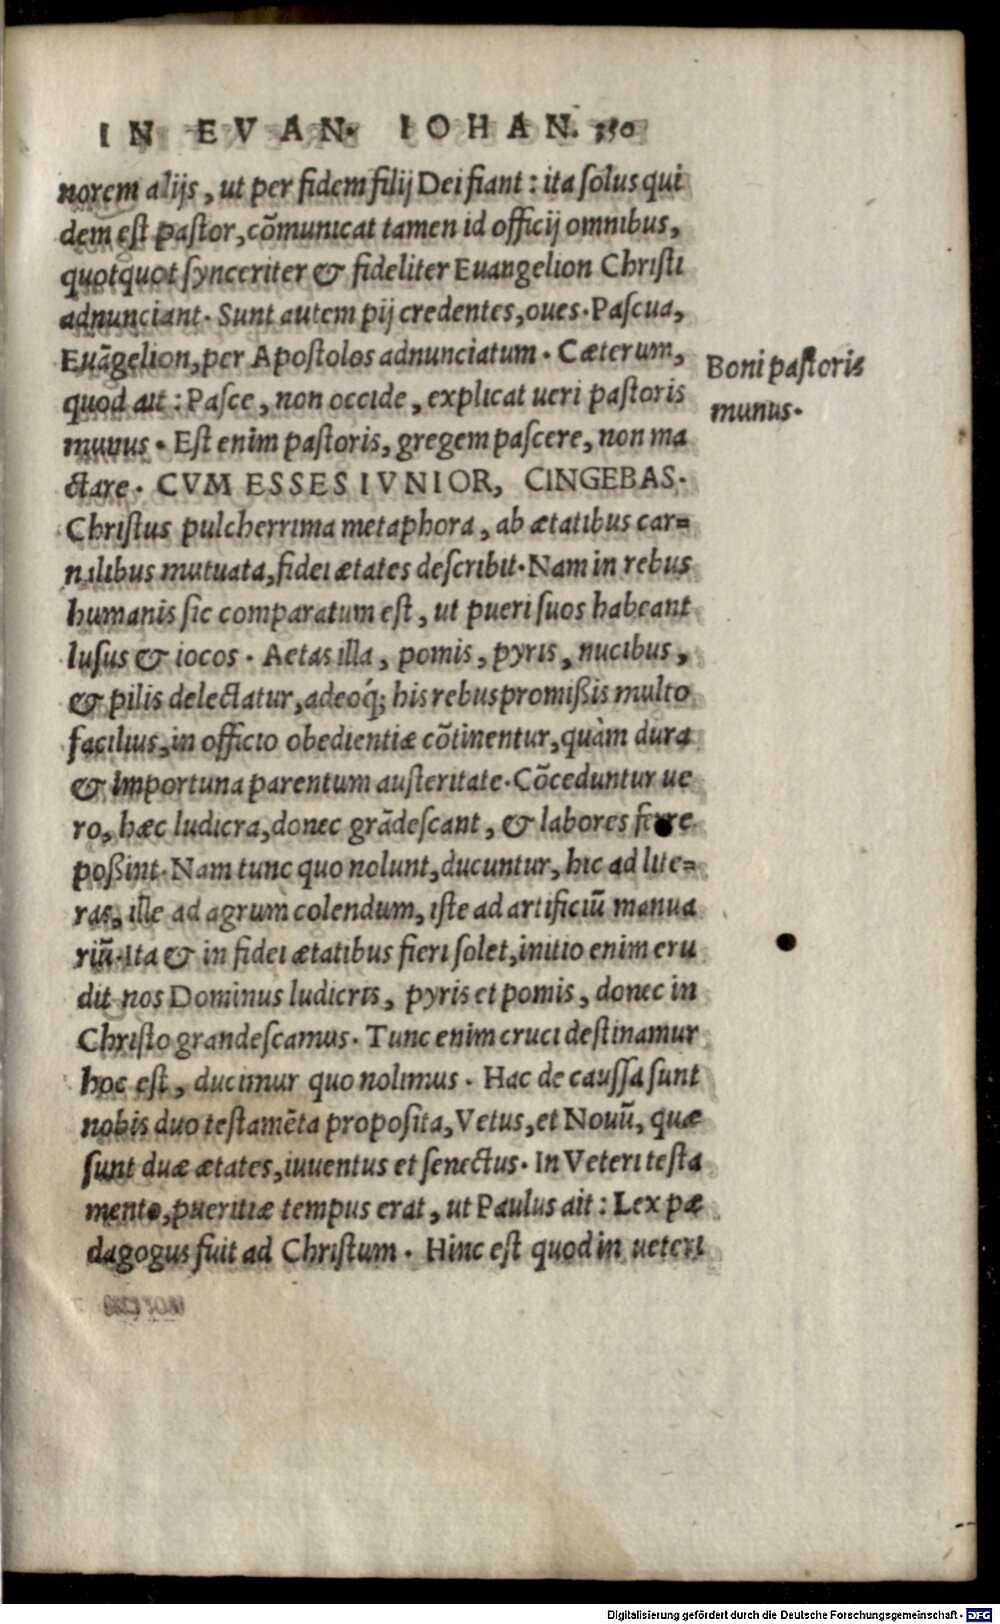 IN EVAN. IOHAN. 350
norem alijs, ut per fidem filij Dei fiant: ita solus qui
dem est pastor, cõmunicat tamen id officij omnibus,
quotquot synceriter & fideliter Euangelion Christi
adnunciant. Sunt autem pij credentes, oues. Pascua,
Euãgelion, per Apostolos adnunciatum. Cæterum,
quod ait: Pasce, non occide, explicat ueri pastoris
munus. Est enim pastoris, gregem pascere, non ma
ctare. CVM ESSES IVNIOR, CINGEBAS.
Christus pulcherrima metaphora, ab ætatibus car=
nalibus mutuata, fidei ætates describit. Nam in rebus
humanis sic comparatum est, ut pueri suos habeant
lusus & iocos. Aetas illa, pomis, pyris, nucibus,
& pilis delectatur, adeoq́; his rebus promißis multo
facilius, in officio obedientiæ cõtinentur, quàm dura
& importuna parentum austeritate. Cõceduntur ue
ro, hæc ludicra, donec grãdescant, & labores ferre
poßint. Nam tunc quo nolunt, ducuntur, hic ad lite=
ras, ille ad agrum colendum, iste ad artificiũ manua
riũ. Ita & in fidei ætatibus fieri solet, initio enim eru
dit nos Dominus ludicris, pyris et pomis, donec in
Christo grandescamus. Tunc enim cruci destinamur
hoc est, ducimur quo nolimus. Hac de caussa sunt
nobis duo testamẽta proposita, Vetus, et Nouũ, quæ
sunt duæ ætates, iuuentus et senectus. In Veteri testa
mento, pueritiæ tempus erat, ut Paulus ait: Lex pæ
dagogus fuit ad Christum. Hinc est quod in ueteri
Boni pastoris
munus.
Digitalisierung gefördert durch die Deutsche Forschungsgemeinschaft - DFG